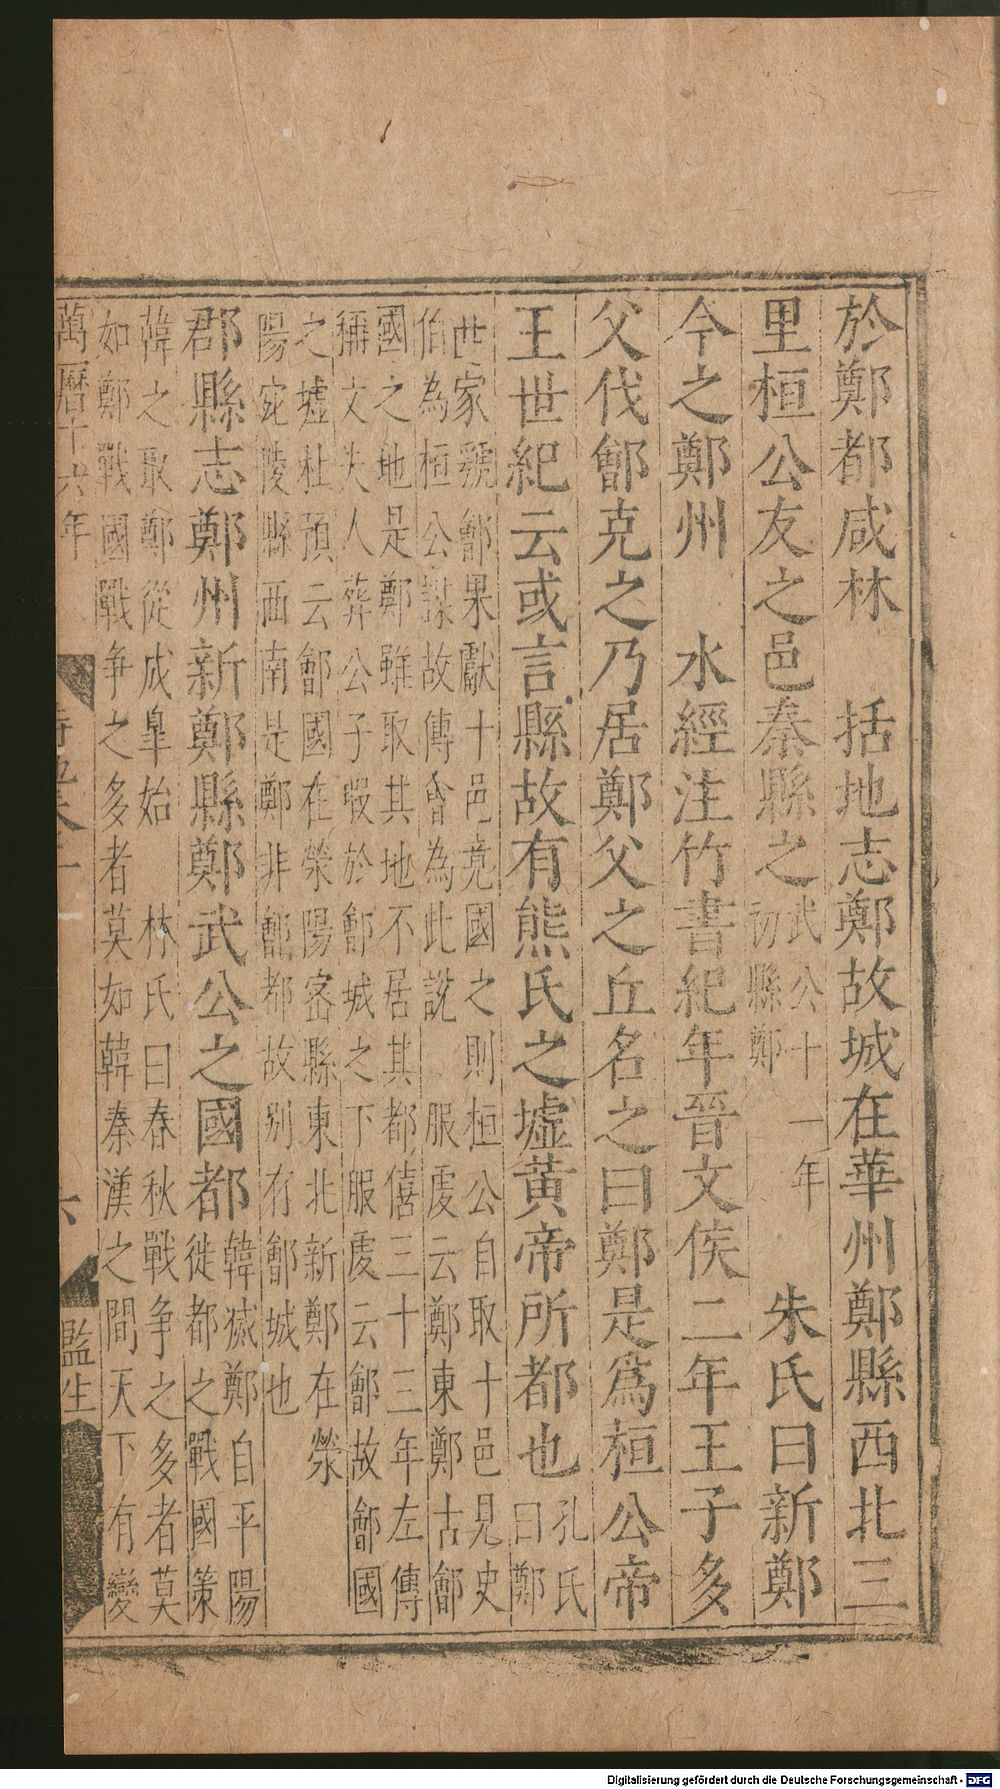 於鄭都咸林　括地志鄭故城在華州鄭縣西北三
里桓公友之邑秦縣之武公十一年
初縣鄭　朱氏曰新鄭
今之鄭州　水經注竹書紀年晉文侯二年王子多
父伐鄶克之乃居鄭父之丘名之曰鄭是爲桓公帝
王世紀云或言縣故有熊氏之墟黃帝所都也孔氏
曰鄭
世家虢鄶果獻十邑竟國之則桓公自取十邑見史
伯為桓公謀故傳會為此說　服虔云鄭東鄭古鄶
國之地是鄭雖取其地不居其都僖三十三年左傳
稱文夫人葬公子瑕於鄶城之下服虔云鄶故鄶國
之墟杜預云鄶國在滎陽宻縣東北新鄭在滎
陽宛陵縣西南是鄭非鄶都故别有鄶城也
郡縣志鄭州新鄭縣鄭武公之國都韓㓕鄭自平陽
徙都之戰國策
韓之取鄭從成皐始　林氏曰春秋戰争之多者莫
如鄭戰國戰争之多者莫如韓秦漢之間天下有變
萬曆十六年
六
監生
Digitalisierung gefördert durch die Deutsche Forschungsgemeinschaft - DFG